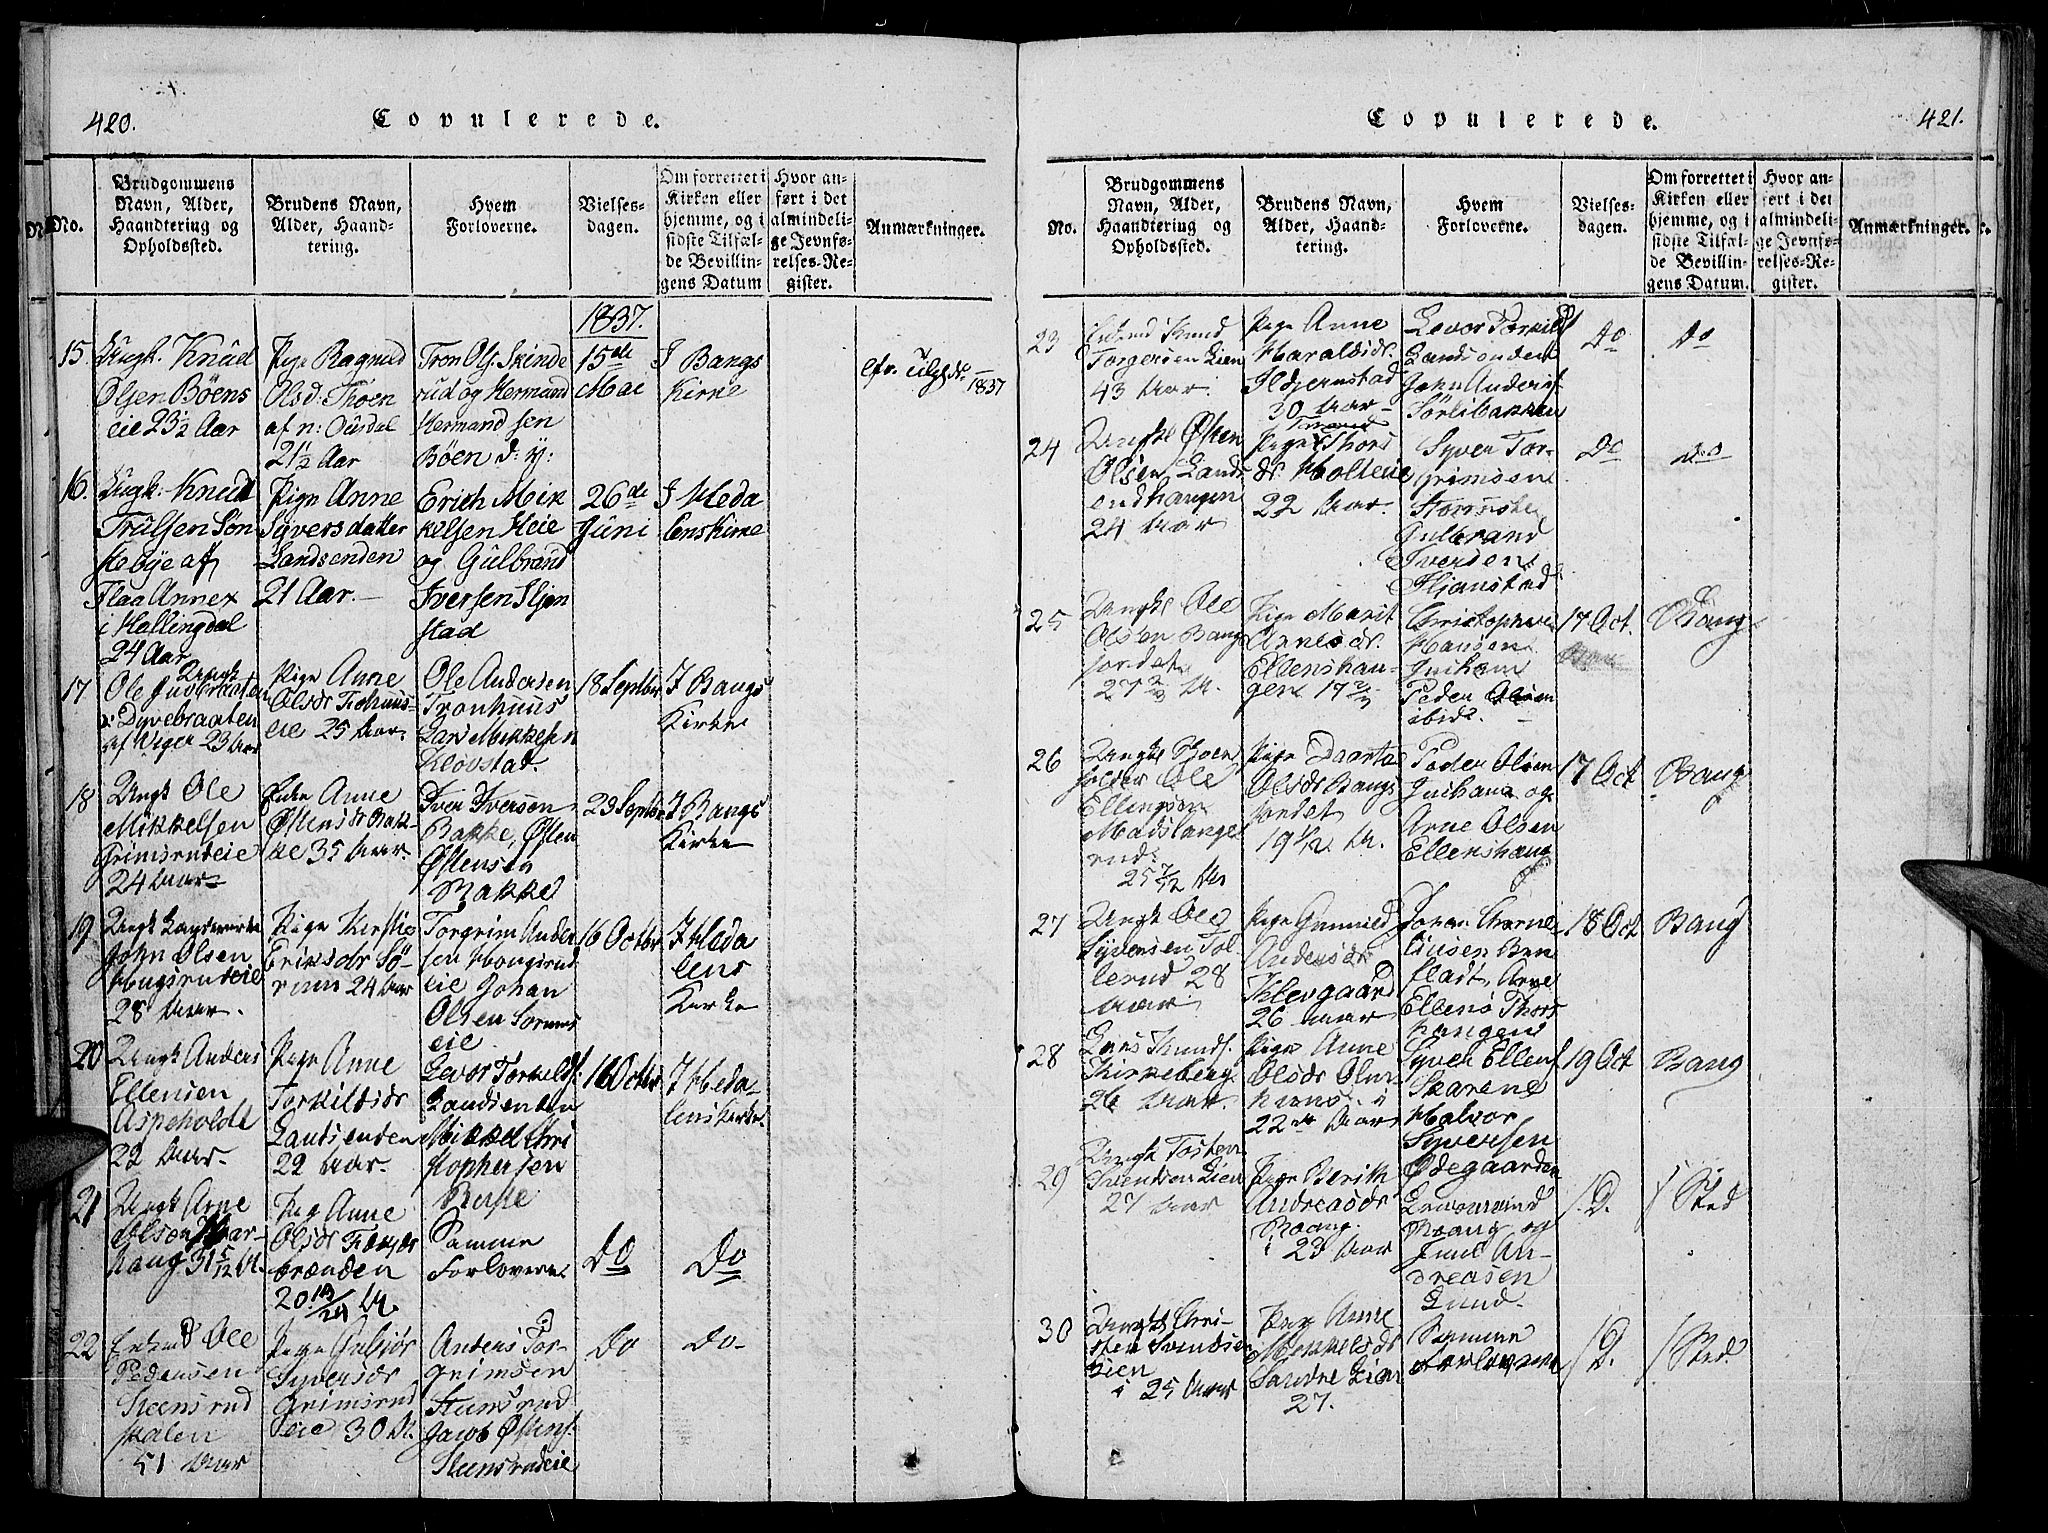 420.
Copulerede.
No.
Brudgommens
Navn, Alder,
Haandtering og
Opholdssted.
Brudens Navn,
Alder, Haand-
tering.
Hvem
Forloverne.
Vielses-
dagen.
Om forrettet i
Kirken eller
hjemme, og i
sidste Tilfæl-
de Bevillin-
gens Datum
Hvor an-
ført i det
almindeli-
ge Jevnfø-
relses-Re-
gister.
Anmærkninger.
1837.
15
Ungk. Knud
Olsen Böens
eie 23½ Aar
Pige Ragnild
Olsd. Thoen
af n: Ousdal
21½ Aar
Tron Ols. Skinde
rud og Hermand
Hermandsen
Böen d: y:
15de
Mai
I Bangs
Kirke
cfr.
1837
16.
Ungk. Knud
Trulsen Sön
stebye af
Flaa Annex
i Hallingdal
24 Aar
Pige Anne
Syversdatter
Landsenden
21 Aar. —
Erich Mik
kelsen Heie
og Gulbrand
Iversen Iljen
stad
26de
Juni
I Heda
lens Kirke
17
Ungk
Ole
Dyvebraaten
23 Aar
Pige Anne
Olsdr
eie 25 Aar.
Ole Andersen
Tronhuus
Lars Mikkelsen
Klovstad.
18 Septbr
I Bangs
Kirke
18
Ungk Ole
Mikkelsen
Grimsrudeie
24 Aar
Enke Anne
Østensdr Bak-
ke 35 Aar.
Iver Iversen
Bakke, Østen
Østensen
Bakke
23 Septbr
I Bangs
Kirke
19
Ungk
John Olsen
Hougsrudeie
28 Aar.
Pige Kirstie
Eriksdr Sö-
rum 24 Aar
Torgrim Ander
sen Hougsrud
eie Johan
Olsen Sorums
eie.
16 Octbr
I Heda
lens
Kirke
20
Ungk Anders
Ellensen
Aspeholdt
22 Aar.
Pige Anne
Torkildsdr
Landsenden
22 Aar.
Levor Torkilds.
Landsenden
Mikkel Chri
stophersen
Bakke
16 Octbr
I Heda-
lens Kirke
21
Ungk Arne
Olsen
haug 31 5/12 A.
Pige Anne
Olsdr
brænden
20 A.
Samme
Forlovere
Do
Do
22
Enkem Ole
Pedersen
Steensrud
51 Aar
Pige Gubjør
Syversdr
Grimsrud
eie 30 A.
Anders Tor-
grimsen
Steensrud
Jacob Østens.
Steensrudeie
Do
Do.
421.
Copulerede.
No.
Brudgommens
Navn, Alder,
Haandtering og
Opholdssted.
Brudens Navn,
Alder, Haand-
tering.
Hvem
Forloverne.
Vielses-
dagen.
Om forrettet i
Kirken eller
hjemme, og i
sidste Tilfæl-
de Bevillin-
gens Datum.
Hvor an-
ført i det
almindeli-
ge Jevnfø-
relses-Re-
gister.
Anmærkninger.
23
Enkem Knud
Torgersen Lien
43 Aar.
Pige Anne
Haraldsdr.
Iljernstad
30 Aar
Levor Torkilds
Landsenden
John Anders.
Sörlibakken
Do
Do
24
Ungk Østen
Olsen Lands
endhaugen
24 Aar
Pige Thors
dr Holteeie
22 Aar.
Syver Tor-
grimsen
Gulbrand
Iversen
Iljernstad
Do
Do
25
Ungk Ole
Olsen Bang
jordet
Pige Marit
Arnesdr.
Ellenshau-
gen 17
Christopher
Hansen
Peder Olsen
ibid.
17 Oct.
Bang
26
Ole
Ellingsen
rud
25 7/12 Aar
Pige Maarta
Olsdr Bangs
jordet
19 A.
Peder Olsen
og
Arne Olsen
Ellenshaug
17 Oct
Bang
27
Ungk Ole
Syversen Tol
lerud 28
Aar.
Pige Gunnild
Andersdr
Klevgaard
26 Aar
Johan
Arne
Ellens Thors
haugen
18 Oct
Bang
28
Lars Knuds.
Kirkeberg
26 Aar.
Pige Anne
Olsdr
22 Aar
Syver Ellens
Skarene
Halvor
Syversen
Ødegaarden
19 Oct
Bang
29
Ungk Tosten
Svendsen Lien
27 Aar
Pige Berith
Andreasdr
23 Aar
og
An-
dreasen
Lund.
/D.
/Sted
30
Ungk Chri-
sten Svendsen
Lien
25 Aar
Pige Anne
Mikkelsdr
Søndre Lien
27.
Samme
Forlovere
/D.
/Sted.